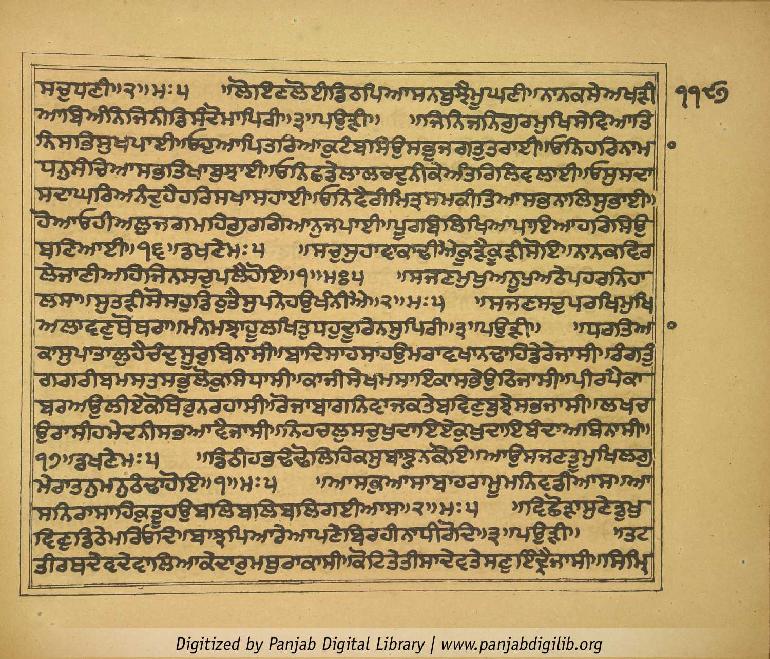 ਸਚੁਧਣੀ॥੨॥ਮਃ੫ ॥ਲੋਇਣਲੋਈਡਿਠਪਿਆਸਨਬੁਝੈਮੂਘਣੀ॥ਨਾਨਕਸੇਅਖੜੀ ੧੧੯੭
ਆਬਿਅੰਨਿਜਿਨੀਡਿਸੰਦੋਮਾਪਿਰੀ॥੩॥ਪਉੜੀ॥ ॥ਜਿਨਿਜਨਿਗੁਰਮੁਖਿਸੇਵਿਆਤਿ
ਨਿਸਭਿਸੁਖਪਾਈ॥ਓਹੁਆਪਿਤਰਿਆਕੁਟੰਬਸਿਉਸਭੁਜਗਤੁਤਰਾਈ॥ਓਨਿਹਰਿਨਾਮ
ਧਨੁਸੰਚਿਆਸਭਤਿਖਾਬੁਝਾਈ॥ਓਨਿਛਡੇਲਾਲਚਦੁਨੀਕੇਅੰਤਰਿਲਿਵਲਾਈ॥ਓਸੁਸਦਾ
ਸਦਾਘਰਿਅਨੰਦੁਹੈਹਰਿਸਖਾਸਹਾਈ॥ਓਨਿਵੈਰੀਮਿਤ੍ਰਸਮਕੀਤਿਆਸਭਨਾਲਿਸੁਭਾਈ॥
ਹੋਆਓਹੀਅਲੁਜਗਮਹਿਗੁਰਗਿਆਨੁਜਪਾਈ॥ਪੂਰਬਿਲਿਖਿਆਪਾਇਆਹਰਿਸਿਉ
ਬਣਿਆਈ॥੧੬॥ਡਖਣੇਮਃ੫ ॥ਸਚੁਸੁਹਾਵਾਕਾਢੀਐਕੂੜੈਕੂੜੀਸੋਇ॥ਨਾਨਕਵਿਰ
ਲੇਜਾਣੀਅਹਿਜਿਨਸਚੁਪਲੈਹੋਇ॥੧॥ਮਃ੫ ॥ਸਜਣਮੁਖੁਅਨੂਪੁਅਠੇਪਹਰਨਿਹਾ
ਲਸਾ॥ਸੁਤੜੀਸੋਸਹੁਡਿਠੁਤੈਸੁਪਨੇਹਉਖੰਨੀਐ॥੨॥ਮਃ੫ ॥ਸਜਣਸਚੁਪਰਖਿਮੁਖਿ
ਅਲਾਵਣੁਥੋਥਰਾ॥ਮੰਨਿਮਝਾਹੂਲਖਿਤੁਧਹੁਦੂਰਿਨਸੁਪਿਰੀ॥੩॥ਪਉੜੀ॥ ॥ਧਰਤਿਆ
ਕਾਸੁਪਾਤਾਲੁਹੈਚੰਦੁਸੂਰੁਬਿਨਾਸੀ॥ਬਾਦਿਸਾਹਸਾਹਉਮਰਾਵਖਾਨਢਾਹਿਡੇਰੇਜਾਸੀ॥ਰੰਗਤੁੰ
ਗਗਰੀਬਮਸਤਸਭੁਲੋਕੁਸਿਧਾਸੀ॥ਕਾਜੀਸੇਖਮਸਾਇਕਾਸਭੇਉਠਿਜਾਸੀ॥ਪੀਰਪੈਕਾ
ਬਰਅਉਲੀਏਕੋਥਿਰੁਨਰਹਾਸੀ॥ਰੋਜਾਬਾਗਨਿਵਾਜਕਤੇਬਵਿਣੁਬੁਝੇਸਭਜਾਸੀ॥ਲਖਚ
ਉਰਾਸੀਹਮੇਦਨੀਸਭਆਵੈਜਾਸੀ॥ਨਿਹਚਲੁਸਚੁਖੁਦਾਇਏਕੁਖੁਦਾਇਬੰਦਾਅਬਿਨਾਸੀ॥
੧੭॥ਡਖਣੇਮਃ੫ ॥ਡਿਠੀਹਭਢੰਢੋਲਿਹਿਕਸੁਬਾਝੁਨਕੋਇ॥ਆਉਸਜਣਤੂਮੁਖਿਲਗੁ
ਮੇਰਾਤਨੁਮਨੁਠੰਢਾਹੋਇ॥੧॥ਮਃ੫ ॥ਆਸਕੁਆਸਾਬਾਹਰਾਮੂਮਨਿਵਡੀਆਸ॥ਆ
ਸਨਿਰਾਸਾਹਿਕੁਤੂਹਉਬਲਿਬਲਿਬਲਿਗਈਆਸ॥੨॥ਮਃ੫ ॥ਵਿਛੋੜਾਸੁਣੇਡੁਖੁ
ਵਿਣੁਡਿਠੇਮਰਿਓਦਿ॥ਬਾਝੁਪਿਆਰੇਆਪਣੇਬਿਰਹੀਨਾਧੀਰੋਦਿ॥੩॥ਪਉੜੀ॥ ॥ਤਟ
ਤੀਰਥਦੇਵਦੇਵਾਲਿਆਕੇਦਾਰੁਮਥੁਰਾਕਾਸੀ॥ਕੋਟਿਤੇਤੀਸਾਦੇਵਤੇਸਣੁਇੰਦ੍ਰੈਜਾਸੀ॥ਸਿਮ੍ਰਿ
Digitized by Panjab Digital Library | www.panjabdigilib.org